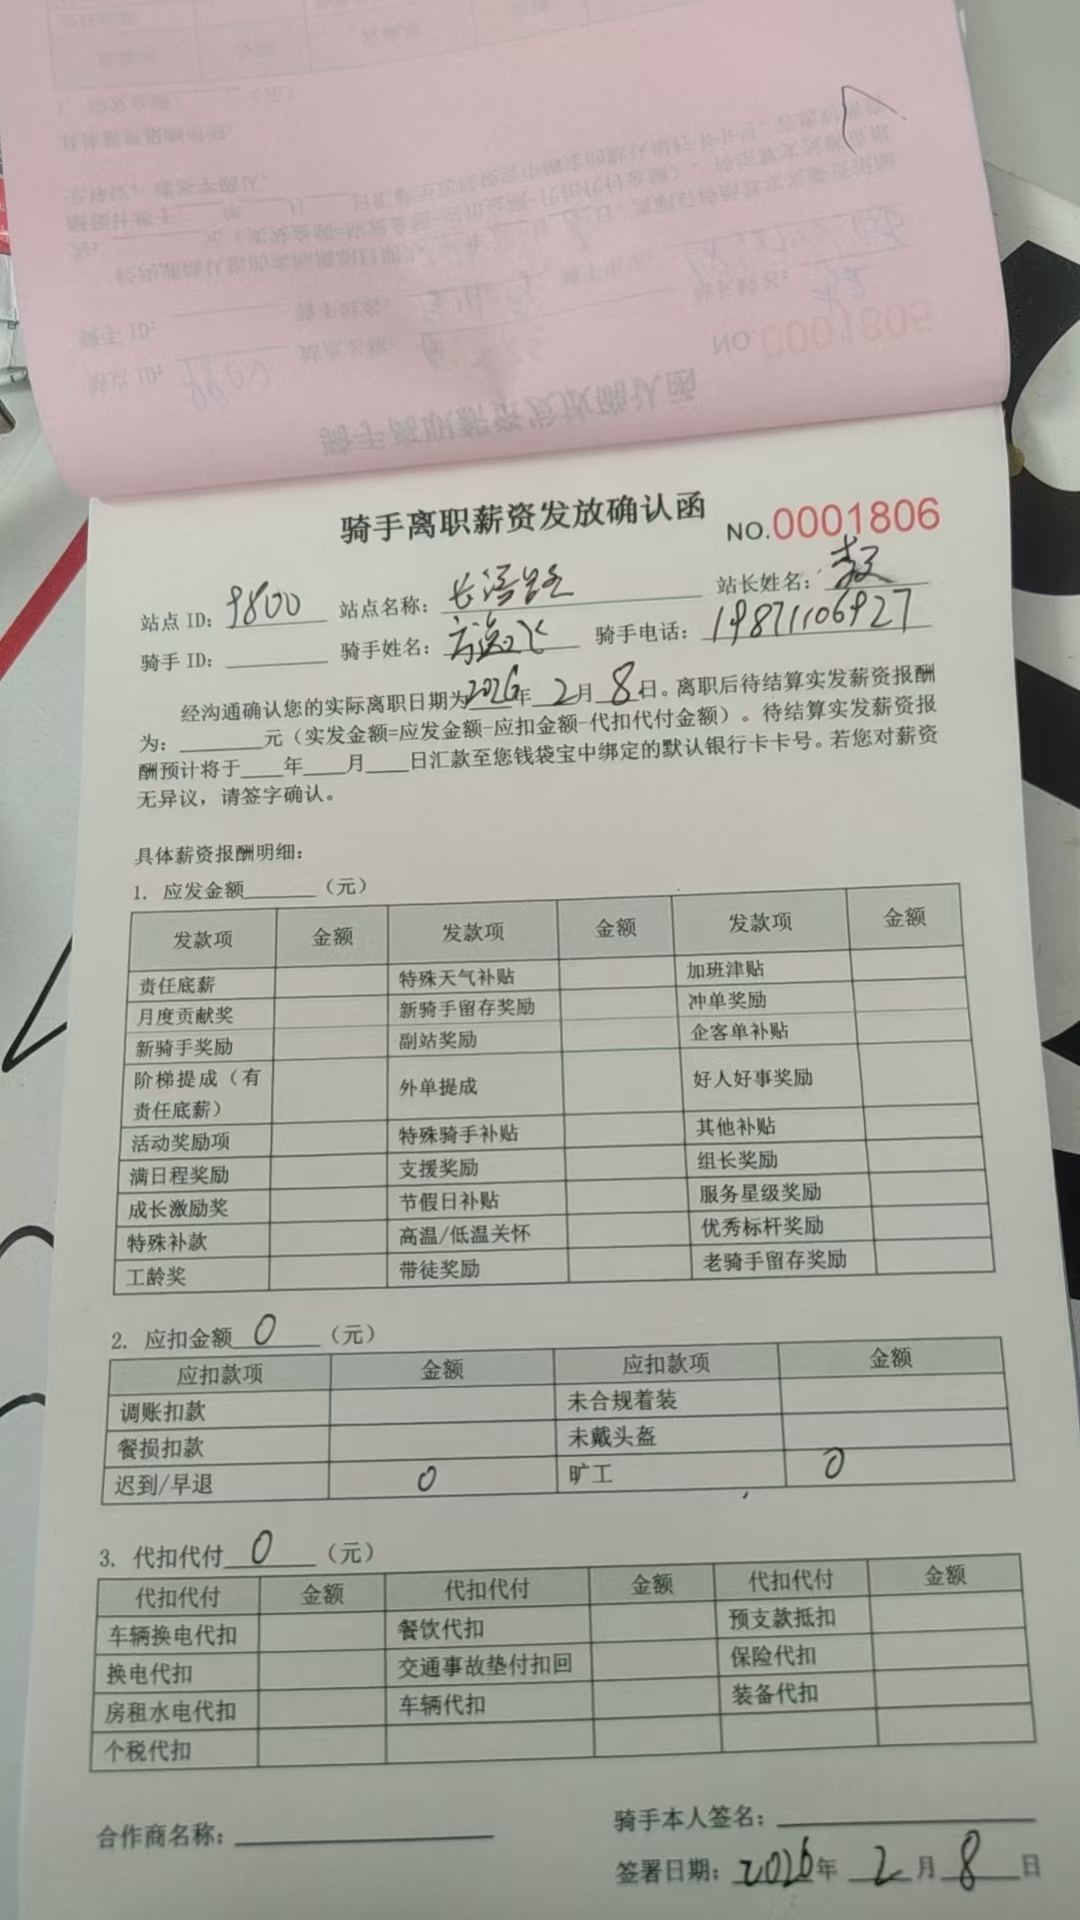 NO.0001805
骑手离职薪资发放确认函
骑手离职薪资发放确认函 NO.0001806
站点 ID: 9800 站点名称: 长 路 站长姓名:
骑手 ID: 骑手姓名: 方逸飞 骑手电话: 19871106927
经沟通确认您的实际离职日期为2026年2月8日。离职后待结算实发薪资报酬
为: 元（实发金额=应发金额-应扣金额-代扣代付金额）。待结算实发薪资报
酬预计将于 年 月 日汇款至您钱袋宝中绑定的默认银行卡卡号。若您对薪资
无异议，请签字确认。
具体薪资报酬明细:
1. 应发金额 （元）
发款项 金额 发款项 金额 发款项 金额
责任底薪 特殊天气补贴 加班津贴
月度贡献奖 新骑手留存奖励 冲单奖励
新骑手奖励 副站奖励 企客单补贴
阶梯提成（有
责任底薪） 外单提成 好人好事奖励
活动奖励项 特殊骑手补贴 其他补贴
满日程奖励 支援奖励 组长奖励
成长激励奖 节假日补贴 服务星级奖励
特殊补款 高温/低温关怀 优秀标杆奖励
工龄奖 带徒奖励 老骑手留存奖励
2. 应扣金额 0 （元）
应扣款项 金额 应扣款项 金额
调账扣款 未合规着装
餐损扣款 未戴头盔
迟到/早退 0 旷工 0
3. 代扣代付 0 （元）
代扣代付 金额 代扣代付 金额 代扣代付 金额
车辆换电代扣 餐饮代扣 预支款抵扣
换电代扣 交通事故垫付扣回 保险代扣
房租水电代扣 车辆代扣 装备代扣
个税代扣
合作商名称: 骑手本人签名:
签署日期: 2026年 2月 8日